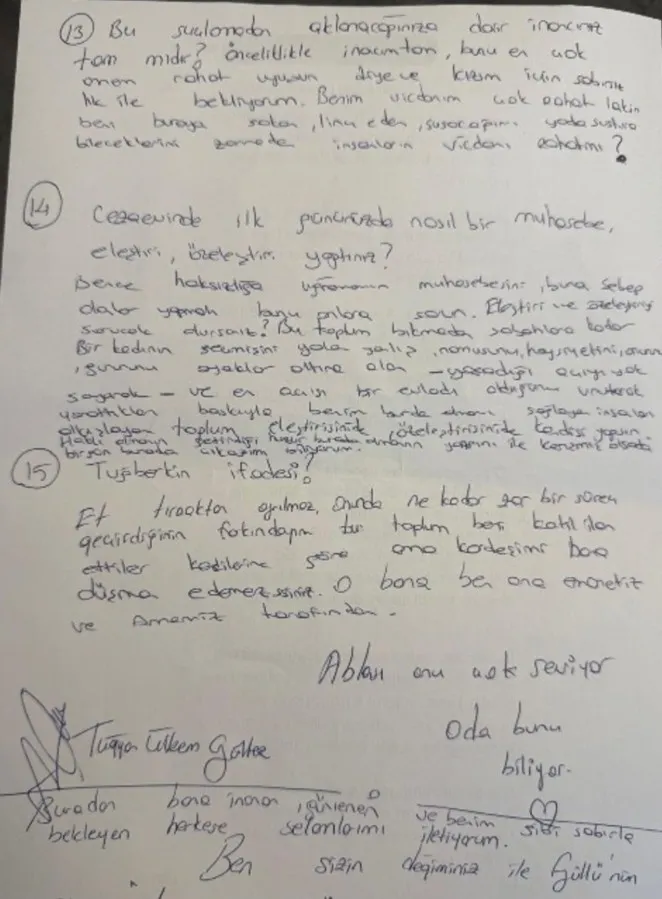 13 Bu suçlamadan aklanacağınıza dair inancınız
tam mıdır? Öncelikle inancımtam, bunu en çok
annem rahat uyusun diye ve kızım için sabırlı
lık ile bekliyorum. Benim vicdanım çok rahat lakin
beni buraya sokan, linç eden, susacağımı yada sustura
bileceklerini zanneden insanların vicdanı rahatmı?
14 Cezaevinde ilk gününüzde nasıl bir muhasebe,
eleştiri, özeleştiri yaptınız?
Bence haksızlığa uğramanın muhasebesini, buna sebep
olanlar yapmalı bunu onlara sorun. Eleştiri ve özeleştiri
Bu toplum bıkmadan sabahlara kadar
Bir kadının geçmişini yola yatırıp, namusunu, haysiyetini, onurunu
, gururunu ayaklar altına alan - yaşadığı acıyı yok
sayarak - ve en acısı bir evladı olduğunu unutarak
yarattıkları baskıyla benim burda olmamı sağlayan insanları
alkışlayan toplum eleştirisinide, özeleştirisinide kendisi yapsın.
Haklı olmanın huzur burada olmanın ile
birgün buradan çıkacağım biliyorum.
15 Tuğberk'in ifadesi?
Et tırnaktan ayrılmaz, Onunda ne kadar zor bir süreç
geçirdiğinin farkındayım bir toplum beni katil ilan
ettiler kendilerine göre ama kardeşimi bana
düşman edemezsiniz. O bana ben ona emanetiz
ve Annemiz tarafından.
Ablası onu çok seviyor
Oda bunu
biliyor.
Tuğyan Ülkem Gülter
Buradan bana inanan, güvenen ve benim gibi sabırla
bekleyen herkese selamlarımı iletiyorum.
Ben sizin değiminiz ile Güllü'nün